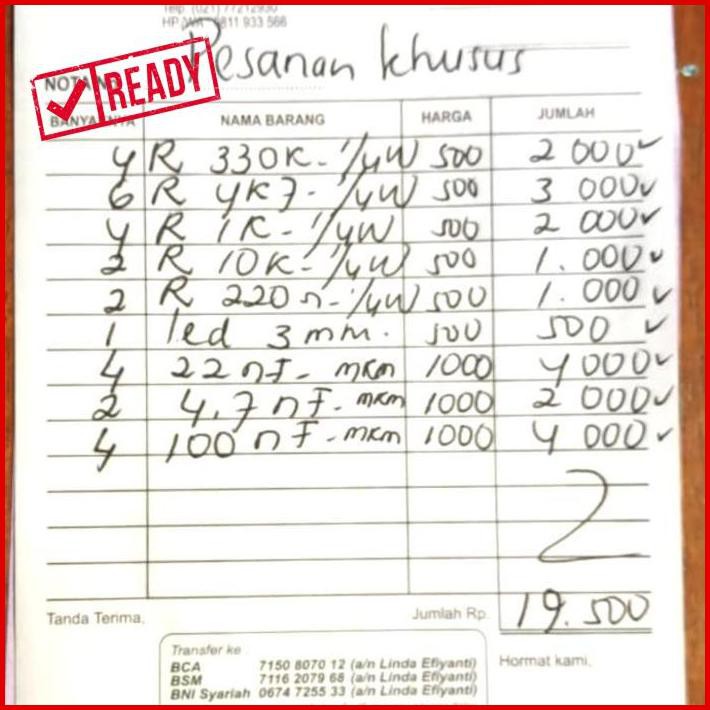 Telp (021) 77212930
HP /WA 0811 933 566
Pesanan khusus
READY
NOTA NO.
BANYAKNYA NAMA BARANG HARGA JUMLAH
4 R 330K - 1/4W 500 2 000
6 R 4K7 - 1/4W 500 3 000
4 R 1K - 1/4W 500 2 000
2 R 10K - 1/4W 500 1.000
2 R 220Ω - 1/4W 500 1.000
1 led 3mm. 500 500
4 22 nF - mkm 1000 4 000
2 4.7 nF - mkm 1000 2 000
4 100 nF - mkm 1000 4 000
Tanda Terima, Jumlah Rp. 19.500
Transfer ke
BCA 7150 8070 12 (a/n Linda Efiyanti)
BSM 7116 2079 68 (a/n Linda Efiyanti)
BNI Syariah 0674 7255 33 (a/n Linda Efiyanti)
Hormat kami,